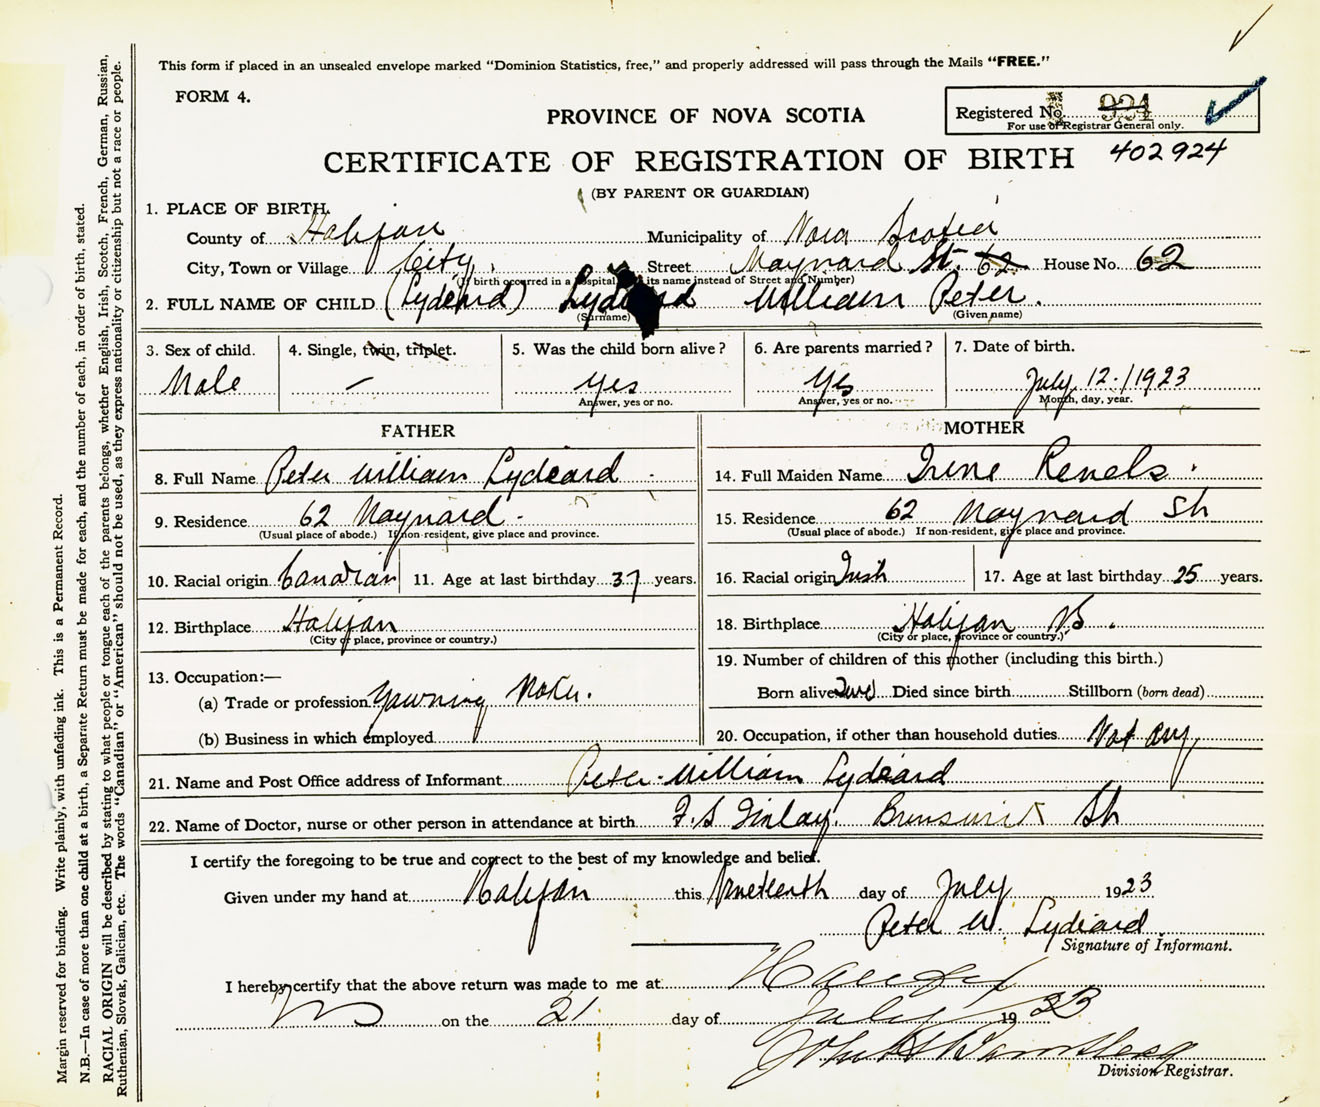 This form if placed in an unsealed envelope marked "Dominion Statistics, free," and properly addressed will pass through the Mails "FREE."
FORM 4.
PROVINCE OF NOVA SCOTIA
Registered No. 924
For use of Registrar General only.
CERTIFICATE OF REGISTRATION OF BIRTH 402924
(BY PARENT OR GUARDIAN)
1. PLACE OF BIRTH.
County of Halifax Municipality of Nova Scotia
City, Town or Village City. Street Maynard St. 62 House No. 62
(If birth occurred in a hospital its name instead of Street and Number)
2. FULL NAME OF CHILD (Lydeard) Lydeard William Peter.
(Surname) (Given name)
3. Sex of child. 4. Single, twin, triplet. 5. Was the child born alive? 6. Are parents married? 7. Date of birth.
Male — Yes Yes July, 12-/1923
Answer, yes or no. Answer, yes or no. Month, day, year.
FATHER MOTHER
8. Full Name Peter William Lydeard 14. Full Maiden Name Irene Revels.
9. Residence 62 Maynard 15. Residence 62 Maynard St
(Usual place of abode.) If non-resident, give place and province. (Usual place of abode.) If non-resident, give place and province.
10. Racial origin Canadian 11. Age at last birthday 37 years. 16. Racial origin Irish 17. Age at last birthday 25 years.
12. Birthplace Halifax 18. Birthplace Halifax NS.
(City or place, province or country.) (City or place, province or country.)
13. Occupation:— 19. Number of children of this mother (including this birth.)
(a) Trade or profession Maker. Born alive Died since birth Stillborn (born dead)
(b) Business in which employed 20. Occupation, if other than household duties Not any,
21. Name and Post Office address of Informant Peter William Lydeard
22. Name of Doctor, nurse or other person in attendance at birth F.S Finlay. Brunswick St
I certify the foregoing to be true and correct to the best of my knowledge and belief.
Given under my hand at Halifax this Nineteenth day of July 1923
Peter W. Lydeard
Signature of Informant.
I hereby certify that the above return was made to me at Halifax
NS on the 21 day of July 1923
John
Division Registrar.
Margin reserved for binding. Write plainly, with unfading ink. This is a Permanent Record.
N.B.—In case of more than one child at a birth, a Separate Return must be made for each, and the number of each, in order of birth, stated.
RACIAL ORIGIN will be described by stating to what people or tongue each of the parents belongs, whether English, Irish, Scotch, French, German, Russian,
Ruthenian, Slovak, Galician, etc. The words "Canadian" or "American" should not be used, as they express nationality or citizenship but not a race or people.